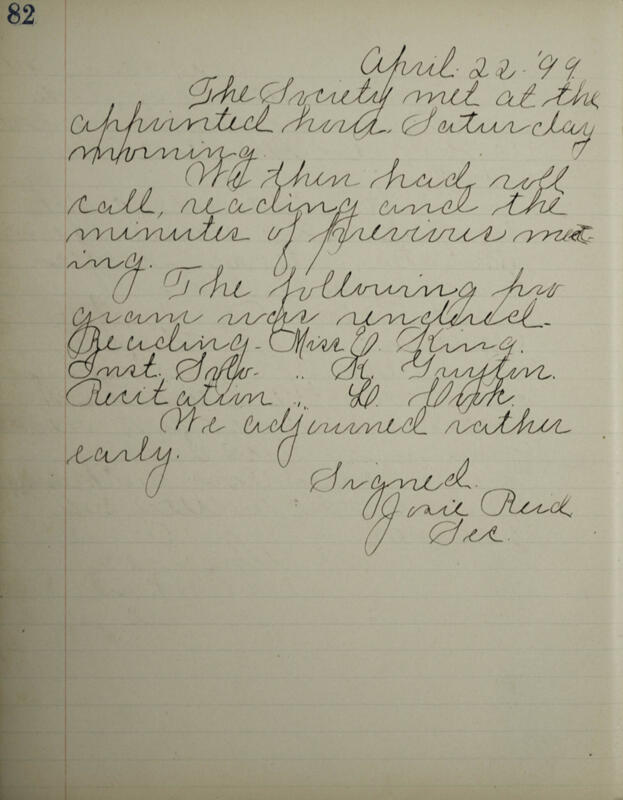 82
April. 22. '99
The Society met at the
appointed hour. Saturday
morning.
We then had roll
call, reading and the
minutes of previous meet-
ing.
The following pro
gram was rendered-
Reading- Miss E. King.
Inst. Solo. " K. Guyton.
Recitation " L.
We adjourned rather
early.
Signed.
Josie Reid
Sec.